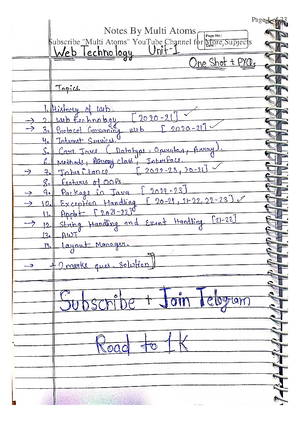 Page 1 of 33
Notes By Multi Atoms
Subscribe "Multi Atoms" YouTube Channel for More Subjects
Page No.:
Web Technology Unit-1
One Shot + PYQs
Topics
1. History of web.
→ 2. Web technology [2020-21] ✓
→ 3. Protocol Governing web [2020-21] ✓
4. Internet Services
5. Core Java (Datatype, Operator, Array).
6. Methods, class, Interface.
→ 7. Inheritance [2022-23, 20-21] ✓
8. Features of OOPs
→ 9. Package in Java [2022-23]
→ 10. Exception Handling [20-21, 21-22, 22-23] ✓
11. Applet [2021-22]
→ 12. String Handling and Event Handling [21-22]
13. AWT
14. Layout Manager.
→ + 2 marks ques. Solution
Subscribe + Join Telegram
Road to 1K